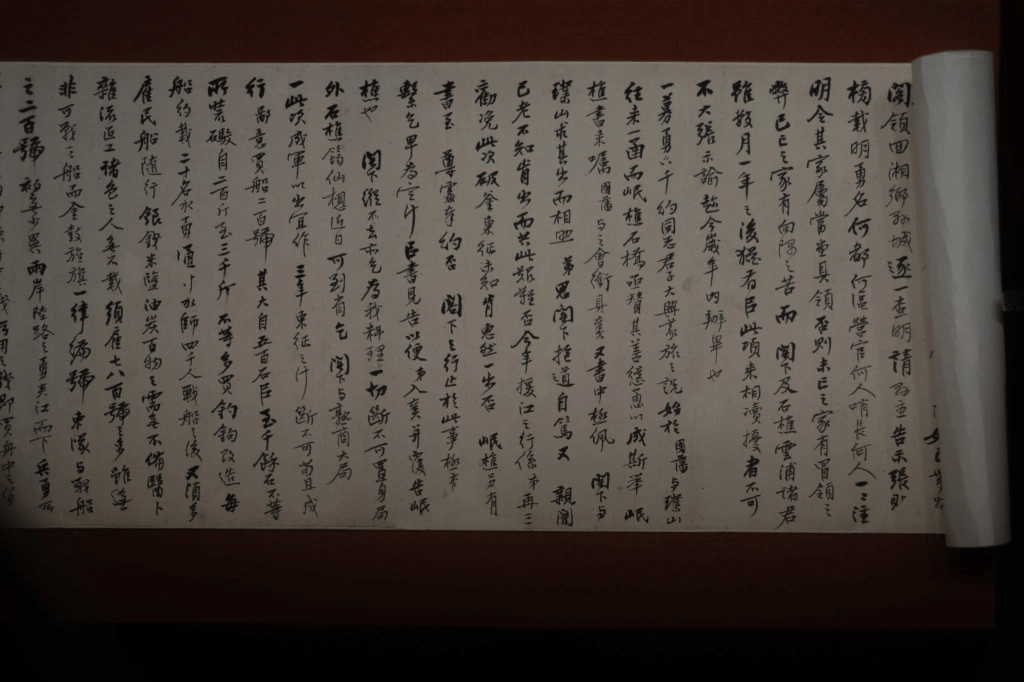 閣領回湘鄉縣城逐一查明請縣主告示張貼
橋栽明勇名何都何區營官何人哨長何人一一注
明令其家屬當堂具領否則未亡之家有冒領之
弊已亡之家有向隅之苦而 閣下及石樵雲浦諸君
雖數月一年之後猶有臣此項來相瀆擾者不可
不大張示諭趕今歲年內辦畢也
一募勇六千約同志君子大興義旅之說始於國藩與璞山
往來一函而岷樵石樵亟贊其善慫恿以成斯舉 岷
樵書來囑國藩與之會銜具奏又書中極佩 閣下與
璞山求其出而相助 弟思閣下抱道自篤又 親闈
已老不知肯出而共此艱難否今年援江之行係弟再三
勸浼此次破釜東征未知肯惠然一出否 岷樵另有
書至 尊處奉約否 閣下之行止於此事極有
繫乞早為定計臣書見告以便弟入奏并覆告岷
樵也 閣下縱不去亦乞為我料理一切斷不可置身局
外石樵筠仙想近日可到省乞 閣下與熟商大局
一此次成軍以出宜作三年東征之計斷不可苟且成
行鄙意買船二百號 其大自五百石臣至千餘石不等
所裝礮自二百斤至三千斤不等多買釣鉤改造每
船約栽二十名水勇通計水師四千人戰船之後又須多
雇民船隨行銀錢米鹽油炭百物之需無不備醫卜
雜流匠工諸色之人無不載須雇七八百號之多雖逐
非可戰之船而金鼓旌旗一律編號 來隊與戰船
之二百號初無少異兩岸陸路之勇夾江而下兵勇所